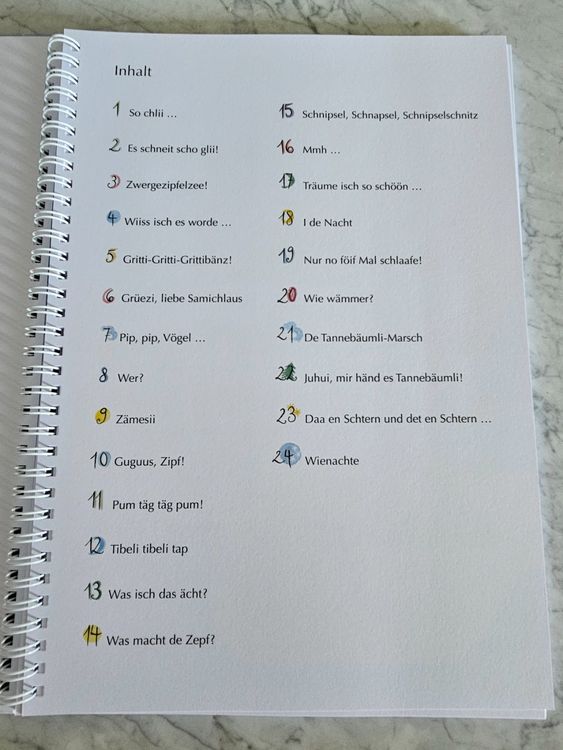 Inhalt
1 So chlii ...
2 Es schneit scho glii!
3 Zwergezipfelzee!
4 Wiiss isch es worde ...
5 Gritti-Gritti-Grittibänz!
6 Grüezi, liebe Samichlaus
7 Pip, pip, Vögel ...
8 Wer?
9 Zämesii
10 Guguus, Zipf!
11 Pum täg täg pum!
12 Tibeli tibeli tap
13 Was isch das ächt?
14 Was macht de Zepf?
15 Schnipsel, Schnapsel, Schnipselschnitz
16 Mmh ...
17 Träume isch so schöön ...
18 I de Nacht
19 Nur no föif Mal schlaafe!
20 Wie wämmer?
21 De Tannebäumli-Marsch
22 Juhui, mir händ es Tannebäumli!
23 Daa en Schtern und det en Schtern ...
24 Wienachte